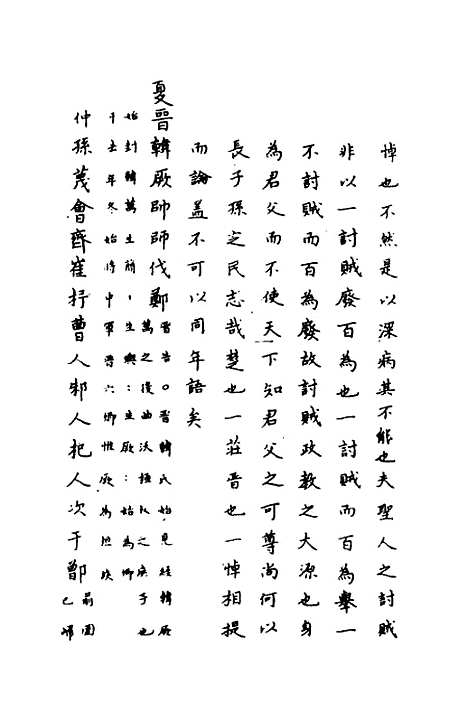 悼也不然是以深病其不能也夫聖人之討賊
非以一討賊廢百為也一討賊而百為舉一
不討賊而百為廢故討賊政教之大源也身
為君父而不使天下知君父之可尊尚何以
長子孫定民志哉楚也一莊晉也一悼相提
而論蓋不可以同年語矣
夏晉韓厥帥師伐鄭
晉告○晉韓氏始見經韓厥
萬之後曲沃桓叔之庶子也
始封韓萬生
生輿
生厥
始為卿
十五年冬始將中軍晉六卿惟厥為
仲孫蔑會齊崔杼曹人邾人杞人次于鄫
前圍
已歸